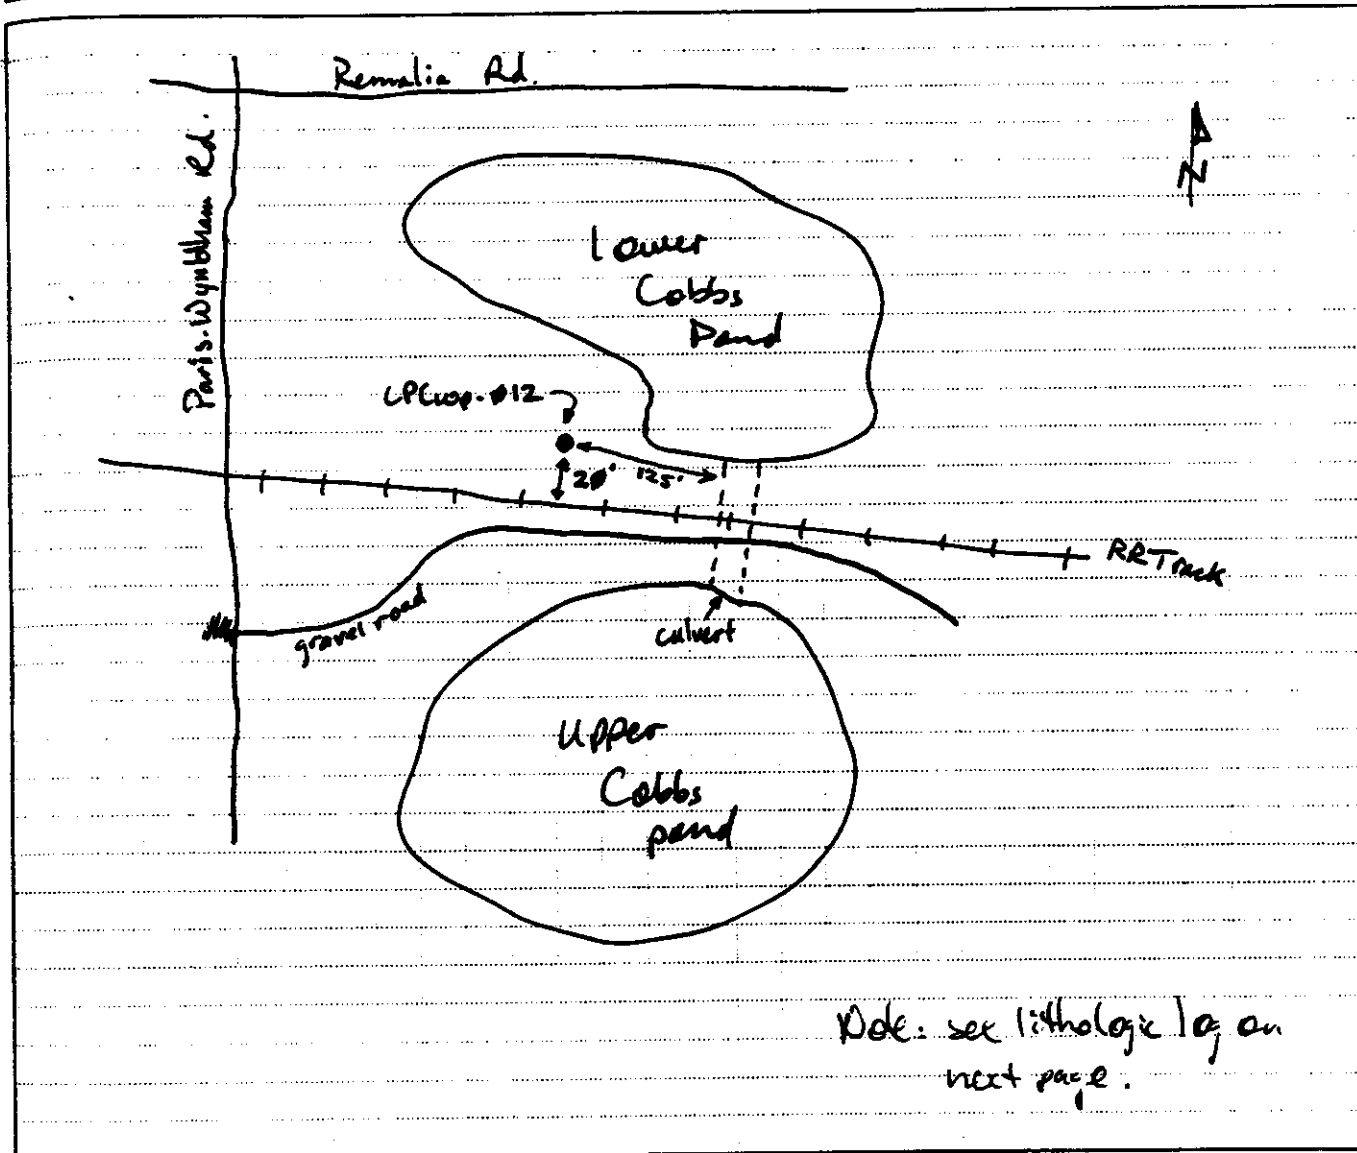 Remalia Rd.
Paris-Wyndham Rd.
N
Lower
Cobbs
Pond
20'
125'
RR Track
gravel road
culvert
Upper
Cobbs
pond
Note: see lithologic log on
next page.